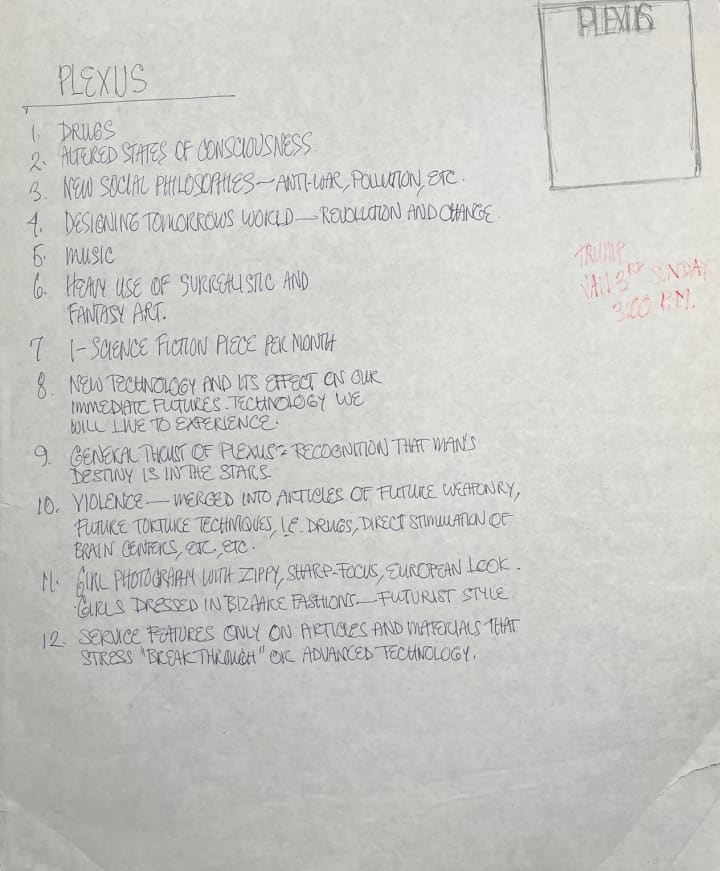 PLEXUS
PLEXUS
1. DRUGS
2. ALTERED STATES OF CONSCIOUSNESS
3. NEW SOCIAL PHILOSOPHIES—ANTI-WAR, POLLUTION, ETC.
4. DESIGNING TOMORROWS WORLD—REVOLUTION AND CHANGE.
5. MUSIC
6. HEAVY USE OF SURREALISTIC AND
FANTASY ART.
7 1-SCIENCE FICTION PIECE PER MONTH
8. NEW TECHNOLOGY AND ITS EFFECT ON OUR
IMMEDIATE FUTURES. TECHNOLOGY WE
WILL LIVE TO EXPERIENCE.
9. GENERAL THRUST OF PLEXUS = RECOGNITION THAT MAN'S
DESTINY IS IN THE STARS
10. VIOLENCE—MERGED INTO ARTICLES OF FUTURE WEAPONRY,
FUTURE TORTURE TECHNIQUES, I.E. DRUGS, DIRECT STIMULATION OF
BRAIN CENTERS, ETC., ETC.
11. GIRL PHOTOGRAPHY WITH ZIPPY, SHARP-FOCUS, EUROPEAN LOOK.
GIRLS DRESSED IN BIZAARE FASHIONS—FUTURIST STYLE
12. SERVICE FEATURES ONLY ON ARTICLES AND MATERIALS THAT
STRESS "BREAKTHROUGH" OR ADVANCED TECHNOLOGY.
TRUMP
JAN 3RD SUNDAY
3:00 P.M.